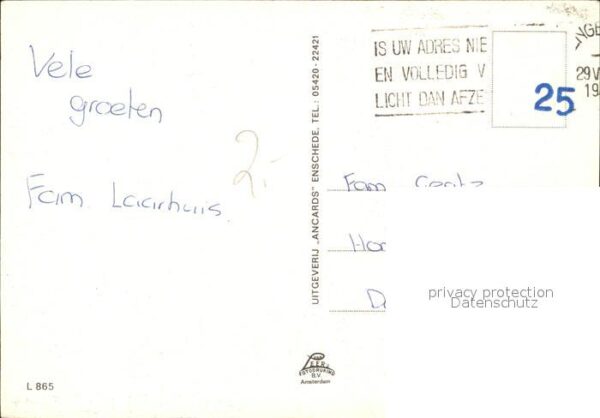 Vele
groeten
Fam. Laarhuis
2,-
L 865
UITGEVERIJ „ANCARDS" ENSCHEDE. TEL.: 05420 - 22421
IS UW ADRES NIE
EN VOLLEDIG V
LICHT DAN AFZE
25
29 V
19
Fam
privacy protection
Datenschutz
FOTODRUKING
B.V.
Amsterdam